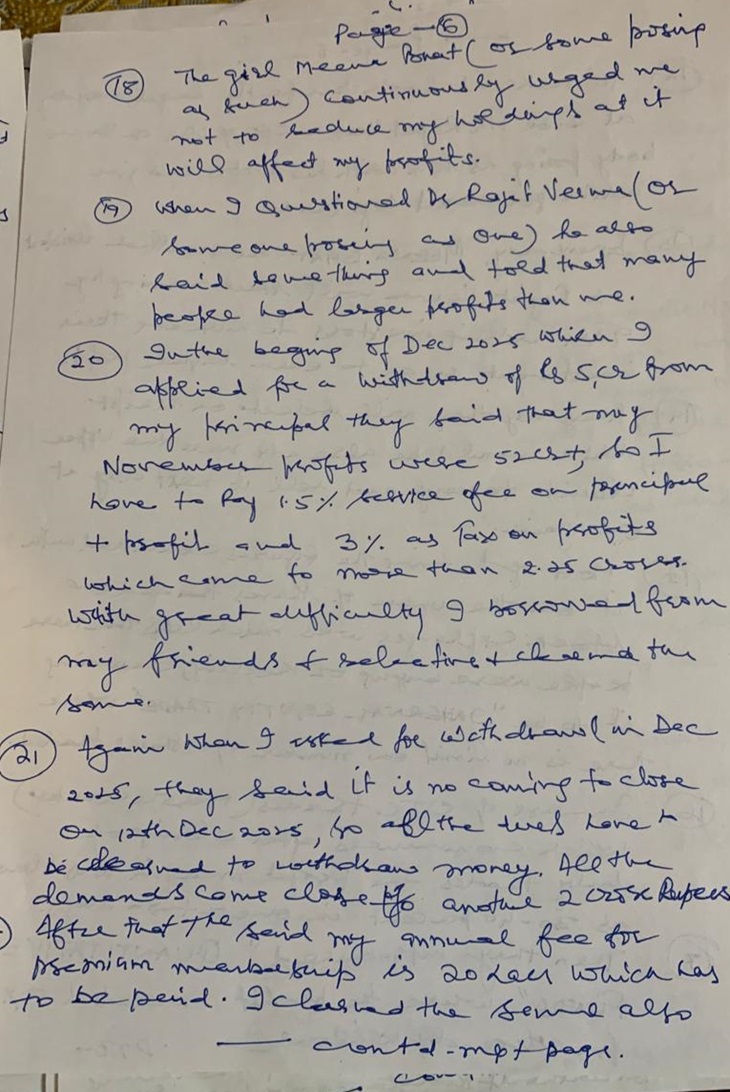 Page - 6
18 The girl Meena Bhat (or some posing
as such) continuously urged me
not to reduce my holdings as it
will affect my profits.
19 When I questioned Dr Rajit Verma (or
someone posing as one) he also
said same thing and told that many
people had larger profits than me.
20 In the beging of Dec 2025 when I
applied for a withdraw of Rs 5 cr from
my principal they said that my
November profits were 52 cr+, so I
have to pay 1.5% service fee on principal
+ profit and 3% as Tax on profits
which come to more than 2.25 crores.
With great difficulty I borrowed from
my friends & relative & cleared the
same.
21 Again when I asked for withdrawl in Dec
2025, they said it is no coming to close
on 12th Dec 2025, so all the dues have to
be cleared to withdraw money. All the
demands come close to another 2 crore Rupees
After that the said my annual fee for
premium membership is 20 lacs which has
to be paid. I cleared the same also
— contd - next page.